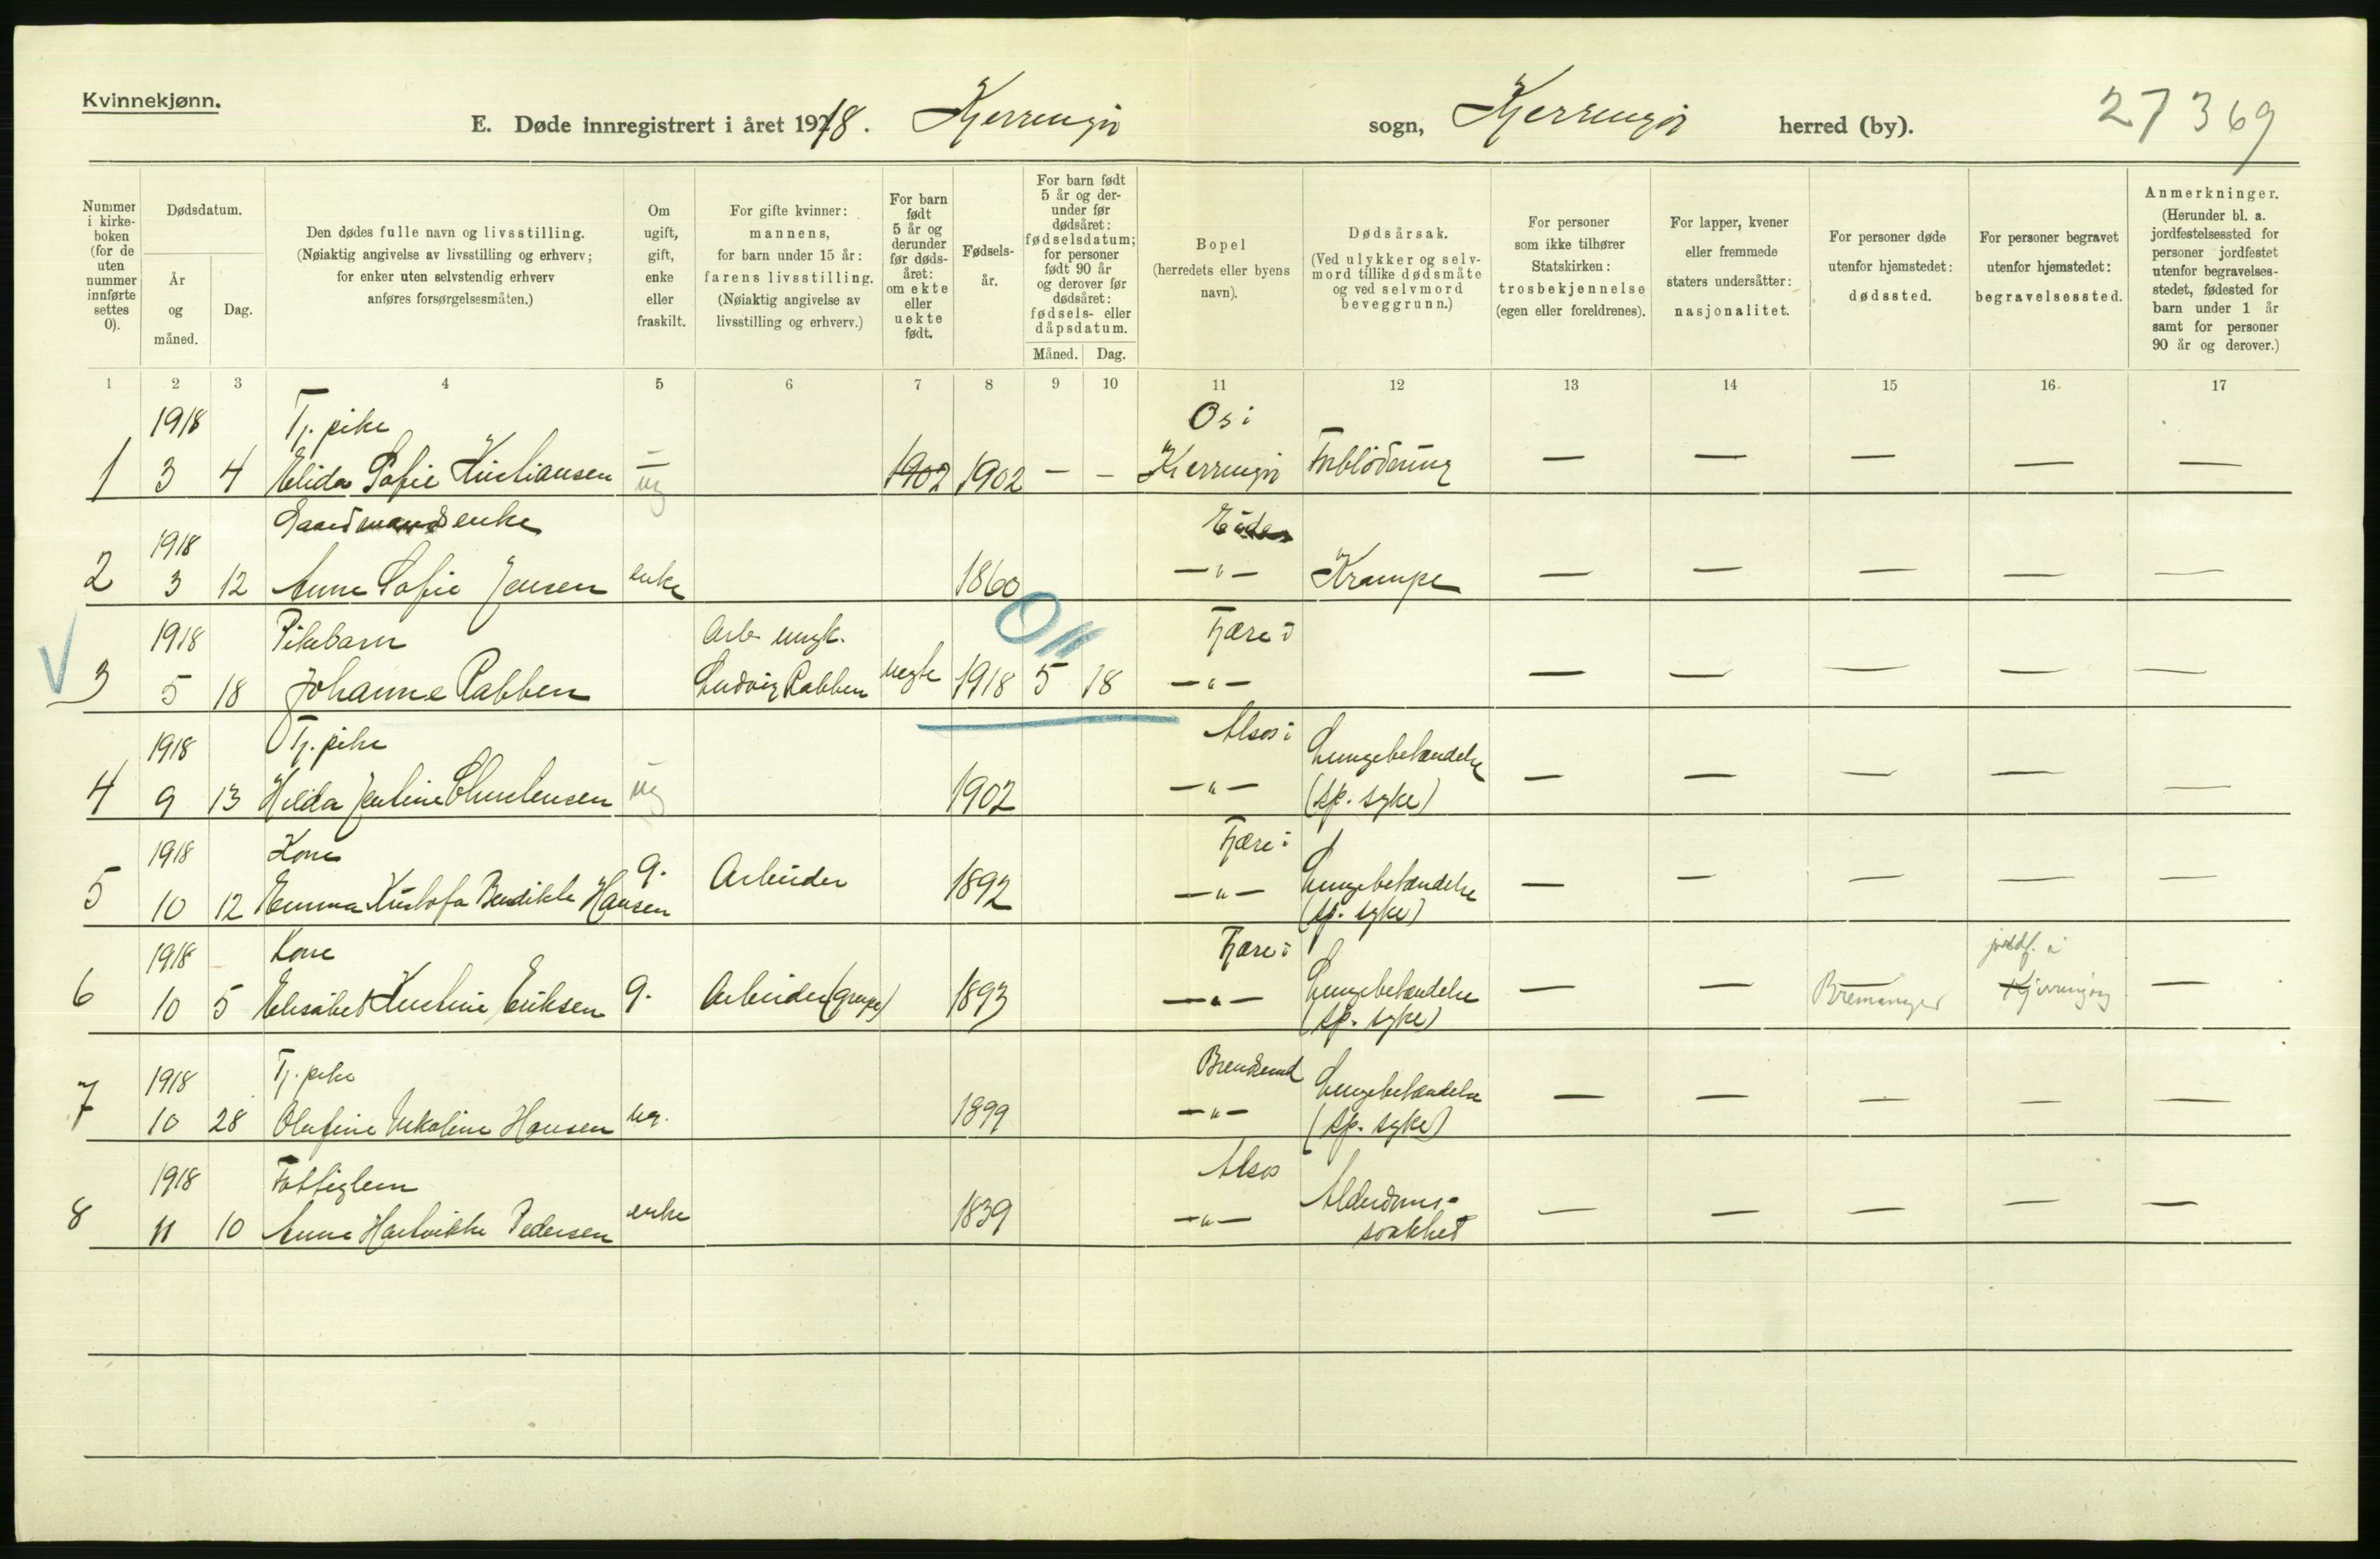 Kvinnekjønn.
E. Døde innregistrert i året 1918. Kjerringøy sogn, Kjerringøy herred (by).
27 369
Nummer i kirke-boken (for de uten nummer innførte settes 0).
Dødsdatum.
År og måned.
Dag.
Den dødes fulle navn og livsstilling.
(Nøiaktig angivelse av livsstilling og erhverv;
for enker uten selvstendig erhverv
anføres forsørgelsesmåten.)
Om ugift, gift, enke eller fraskilt.
For gifte kvinner:
mannens,
for barn under 15 år:
farens livsstilling.
(Nøiaktig angivelse av
livsstilling og erhverv.)
For barn født 5 år og derunder før døds-året: om ekte eller uekte født.
Fødsels-år.
For barn født 5 år og der-under før dødsåret: fødselsdatum; for personer født 90 år og derover før dødsåret: fødsels- eller dåpsdatum.
Måned. Dag.
Bopel
(herredets eller byens
navn).
Dødsårsak.
(Ved ulykker og selv-
mord tillike dødsmåte
og ved selvmord
beveggrunn.)
For personer
som ikke tilhører
Statskirken:
trosbekjennelse
(egen eller foreldrenes).
For lapper, kvener
eller fremmede
staters undersåtter:
nasjonalitet.
For personer døde
utenfor hjemstedet:
dødssted.
For personer begravet
utenfor hjemstedet:
begravelsessted.
Anmerkninger.
(Herunder bl. a.
jordfestelsessted for
personer jordfestet
utenfor begravelses-
stedet, fødested for
barn under 1 år
samt for personer
90 år og derover.)
1 2 3 4 5 6 7 8 9 10 11 12 13 14 15 16 17
1918 Tj. pike Os i
1 3 4 Elida Sofie Kristiansen — ug 1902 1902 – – Kjerringøy Forblödning — — — — —
1918 Gaardmandsenke
2 3 12 Anne Sofie Jensen enke 1860 —"— Krampe — — — — —
1918 Pikebarn Arb. ungk. Fjære i
3 5 18 Johanne Rabben Ludvig Rabben uegte 1918 5 18 —"— — — — — —
1918 Tj. pike Alsos i Lungebetændelse
4 9 13 Hilda Christensen ug 1902 —"— (sp. syke) — — — — —
1918 Kone Fjære i
5 10 12 Emma Kristofa Bendikte Hansen g. Arbeider 1892 —"— Lungebetændelse — — — — —
(sp. syke)
1918 Kone Fjære i jordf. i
6 10 5 Elisabet Kristine Eriksen g. Arbeider 1893 —"— Lungebetændelse — — Bremanger Kjerringøy —
(sp. syke)
1918 Tj. pike Lungebetændelse
7 10 28 Olufine Nikoline Hansen ug. 1899 —"— (sp. syke) — — — — —
1918 Fattiglem Alsos
8 11 10 Anne Hartvikke Pedersen enke 1839 —"— Alderdoms- — — — — —
svakhed